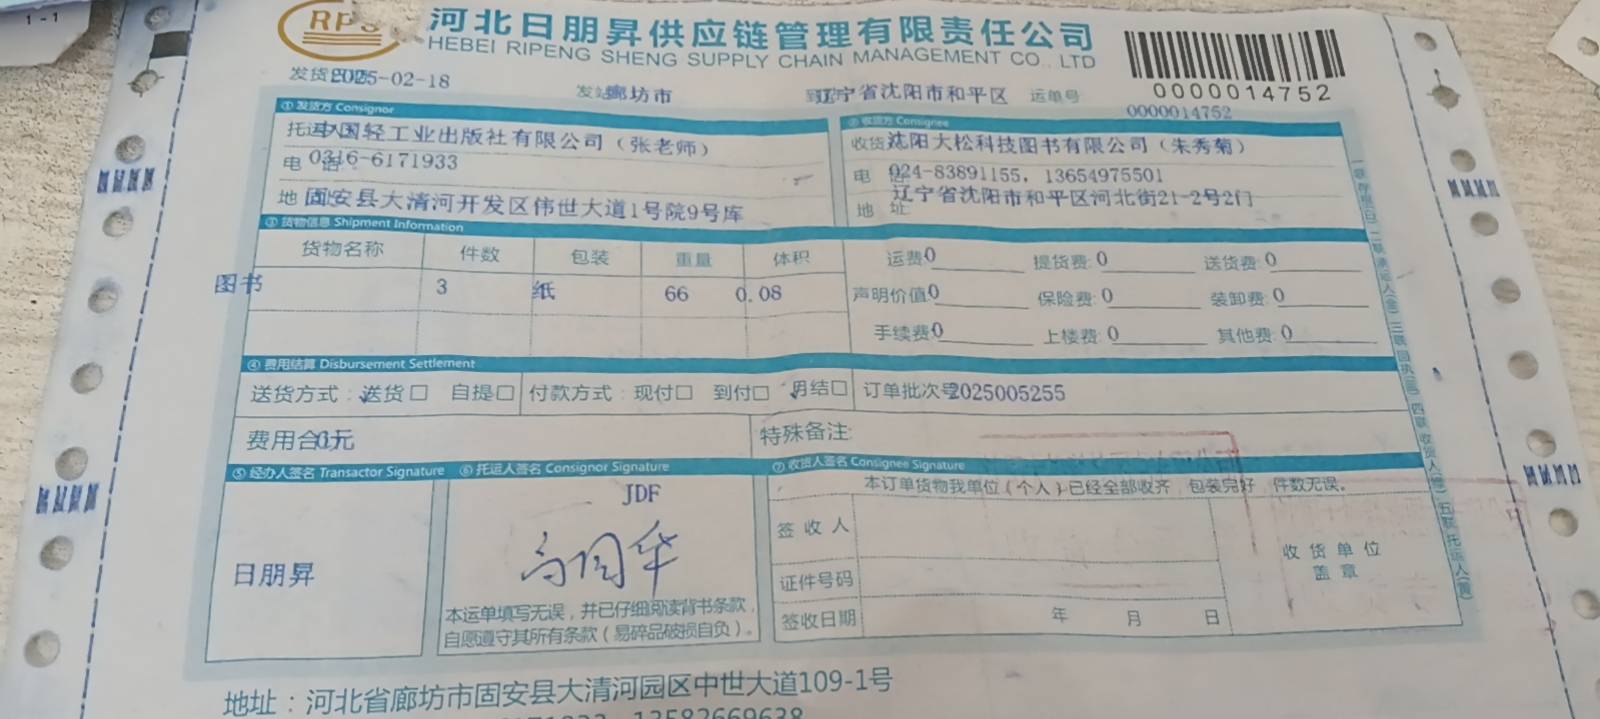 1-1
RPS
河北日朋昇供应链管理有限责任公司
HEBEI RIPENG SHENG SUPPLY CHAIN MANAGEMENT CO., LTD
0000014752
发货 2025-02-18 发站 廊坊市 辽宁省沈阳市和平区 运单号 0000014752
①发货方 Consignor
②收货方 Consignee
托运 中国轻工业出版社有限公司（张老师）
收货 沈阳大松科技图书有限公司（朱秀菊）
电 0316-6171933
电 024-83891155, 13654975501
地 固安县大清河开发区伟世大道1号院9号库
地址 辽宁省沈阳市和平区河北街21-2号2门
③货物信息 Shipment Information
货物名称 件数 包装 重量 体积
图书 3 纸 66 0.08
运费 0 提货费: 0 送货费: 0
声明价值 0 保险费: 0 装卸费: 0
手续费 0 上楼费: 0 其他费: 0
④费用结算 Disbursement Settlement
送货方式：送货□ 自提□ 付款方式：现付□ 到付□ 月结□ 订单批次号 2025005255
费用合 0元 特殊备注:
⑤经办人签名 Transactor Signature
⑥托运人签名 Consignor Signature
⑦收货人签名 Consignee Signature
日朋昇
JDF
本运单填写无误，并已仔细阅读背书条款，
自愿遵守其所有条款（易碎品破损自负）。
本订单货物我单位（个人）已经全部收齐 包装完好 件数无误。
签收人
证件号码
签收日期 年 月 日
收货单位
盖章
地址：河北省廊坊市固安县大清河园区中世大道109-1号
13582669638